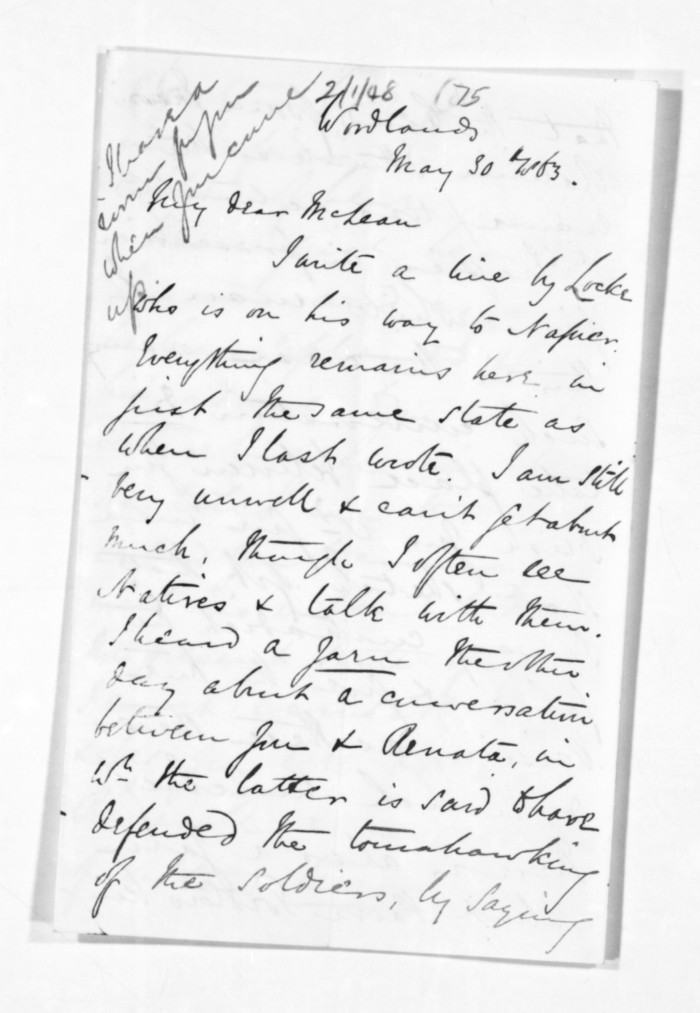 2/1/48 175
Woodlands
May 30th 1863.
I have a
when you come
up
My dear McLean
I write a line by Locke
who is on his way to Napier.
Everything remains here in
just the same state as
when I last wrote. I am still
very unwell & can't get about
much, though I often see
Natives & talk with them.
I heard a yarn the other
day about a conversation
between you & Renata, in
wh the latter is said to have
defended the tomahawking
of the soldiers, by saying